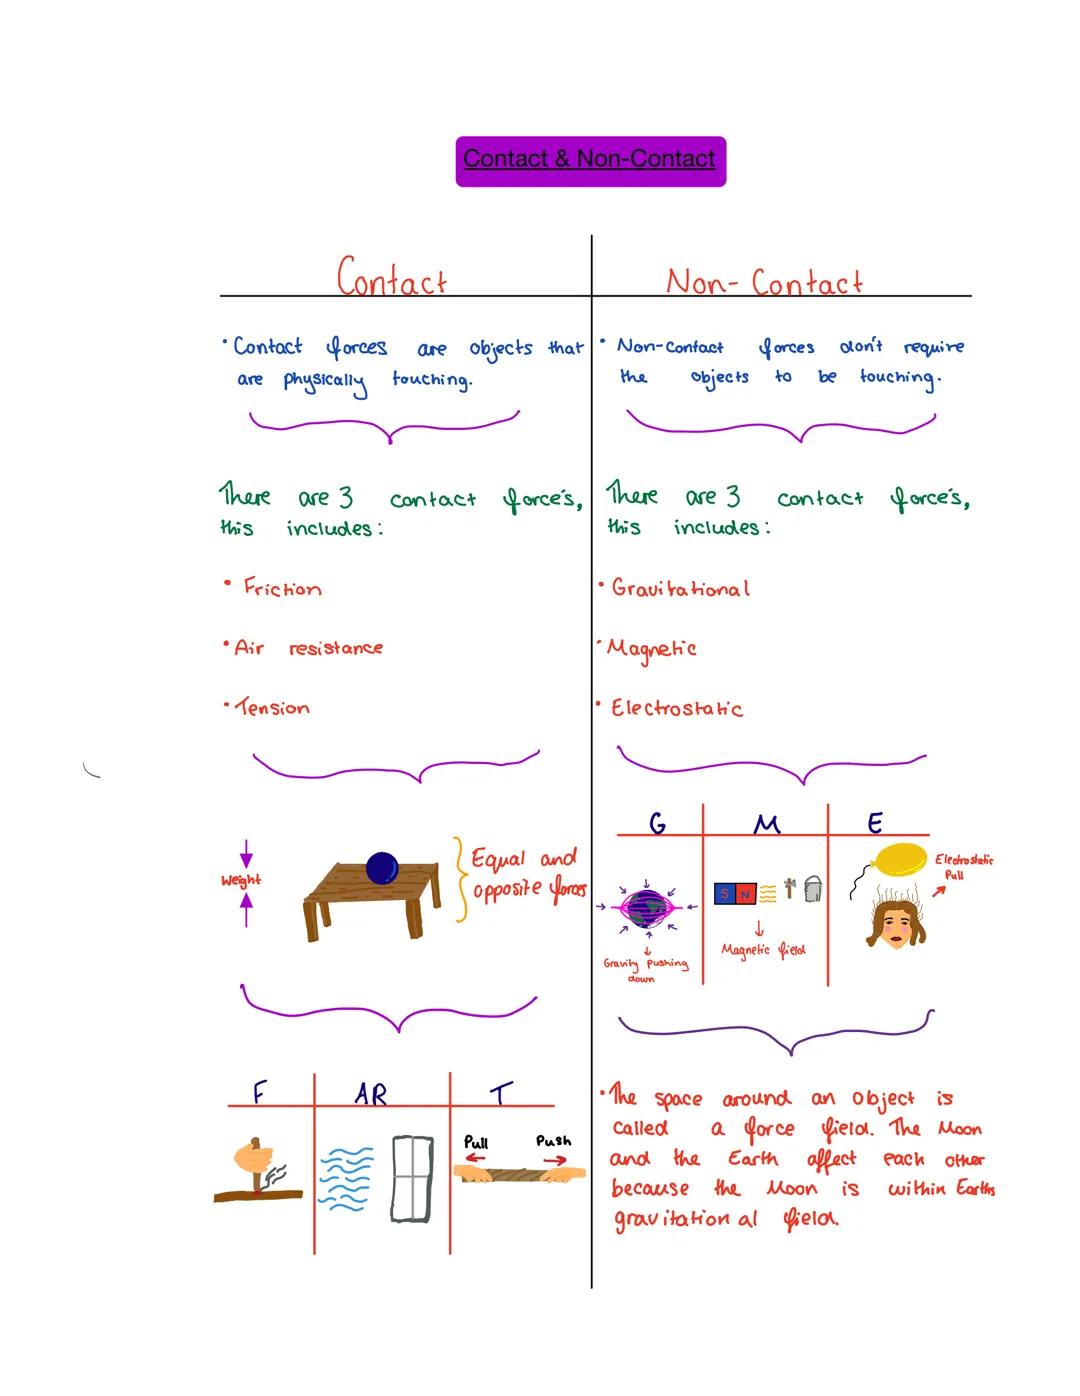 Contact & Non-Contact
Contact
• Contact forces are objects that
are physically touching.
There are 3 contact force's,
this includes:
• Friction
• Air resistance
• Tension
Weight
Equal and
opposite forces
F AR T
Pull Push
Non-Contact
• Non-Contact forces don't require
the objects to be touching.
There are 3 contact force's,
this includes:
• Gravitational
• Magnetic
• Electrostatic
G M E
Electrostatic
Pull
S N
Gravity pushing
down
Magnetic field
• The space around an object is
called a force field. The Moon
and the Earth affect each other
because the Moon is within Earths
gravitation al field.